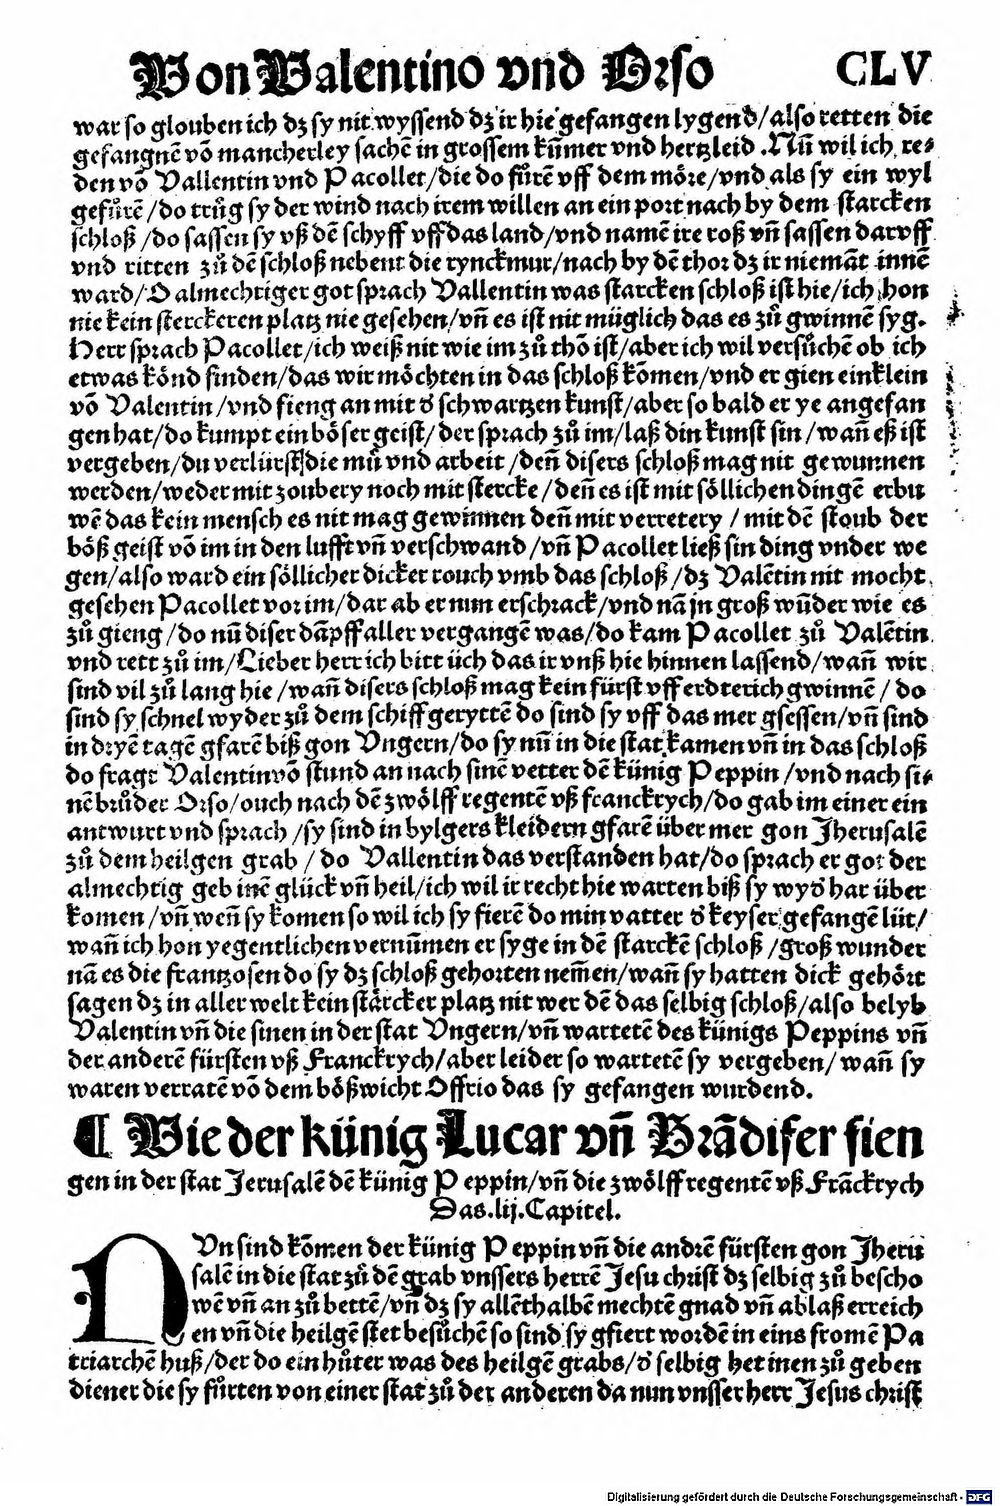 Von Valentino vnd Orso CLV
war so glouben ich dz sy nit wyssend dz ir hie gefangen lygend/also retten die
gefangnē vō mancherley sachē in grossem kūmer vnd hertzleid .Nū wil ich re⸗
den vō Vallentin vnd Pacollet/die do fůrē vff dem möre/vnd als sy ein wyl
gefůrē/do trůg sy der wind nach irem willen an ein port nach by dem starcken
schloß/do sassen sy vß dē schyff vff das land/vnd namē ire roß vñ sassen daruff
vnd ritten zů dē schloß nebent die rynckmur/nach by dē thor dz ir niemāt innē
ward/O almechtiger got sprach Vallentin was starcken schloß ist hie/ich hon
nie kein sterckeren platz nie gesehen/vñ es ist nit müglich das es zů gwinnē syg.
Herr sprach Pacollet/ich weiß nit wie im zů thō ist/aber ich wil versůchē ob ich
etwas könd finden/das wir möchten in das schloß kōmen/vnd er gien ein klein
vō Valentin/vnd fieng an mit d̕ schwartzen kunst/aber so bald er ye angefan
gen hat/do kumpt ein böser geist/der sprach zů im/laß din kunst sin/wañ eß ist
vergeben/du verlürst die mü vnd arbeit/deñ disers schloß mag nit gewunnen
werden/weder mit zoubery noch mit stercke/deñ es ist mit söllichen dingē erbu
wē das kein mensch es nit mag gewinnen deñ mit verretery/mit dē stoub der
böß geist vō im in den lufft vñ verschwand/vñ Pacollet ließ sin ding vnder we
gen/also ward ein söllicher dicker rouch vmb das schloß/dz Valētin nit mocht
gesehen Pacollet vor im/dar ab er nun erschrack/vnd nā jn groß wūder wie es
zů gieng/do nū diser dāpff aller vergangē was/do kam Pacollet zů Valētin
vnd rett zů im/Lieber herr ich bitt üch das ir vnß hie hinnen lassend/wañ wir
sind vil zů lang hie/wañ disers schloß mag kein fürst vff erdterich gwinnē/do
sind sy schnel wyder zů dem schiff gerytttē do sind sy vff das mer gsessen/vñ sind
in dryē tagē gfarē biß gon Vngern/do sy nū in die stat kamen vñ in das schloß
do fragt Valentin vō stund an nach sinē vetter dē künig Peppin/vnd nach si⸗
nē brůder Orso/ouch nach dē zwölff regentē vß franckrych/do gab im einer ein
antwurt vnd sprach/sy sind in bylgers kleidern gfarē über mer gon Jherusalē
zů dem heilgen grab/do Vallentin das verstanden hat/do sprach er got der
almechtig geb inē glück vñ heil/ich wil ir recht hie warten biß sy wyd̕ har über
komen/vñ weñ sy komen so wil ich sy fierē do min vatter d̕ keyser gefangē lüt/
wañ ich hon yegentlichen vernūmen er syge in dē starckē schloß/groß wunder
nā es die frantzosen do sy dz schloß gehorten nem̄en/wañ sy hatten dick gehört
sagen dz in aller welt kein stārcker platz nit wer dē das selbig schloß/also belyb
Valentin vñ die sinen in der stat Vngern/vñ wartetē des künigs Peppins vñ
der anderē fürsten vß Franckrych/aber leider so wartetē sy vergeben/wañ sy
waren verratē vō dem bößwicht Offrio das sy gefangen wurdend.
¶ Wie der künig Lucar vñ Brādifer fien
gen in der stat Jerusalē dē künig Peppin/vñ die zwölff regentē vß Frāckrych
Das.lij.Capitel.
NVn sind kōmen der künig Peppin vñ die andrē fürsten gon Jheru
salē in die stat zů dē grab vnssers herrē Jesu christ dz selbig zů bescho
wē vñ an zů bettē/vñ dz sy allēthalbē mechtē gnad vñ ablaß erreich
en vñ die heilgē stet besůchē so sind sy gfiert wordē in eins fromē Pa
triarchē huß/der do ein hůter was des heilgē grabs/d̕ selbig het inen zů geben
diener die sy fůrten von einer stat zů der anderen da nun vnsser herr Jesus christ
Digitalisierung gefördert durch die Deutsche Forschungsgemeinschaft - DFG